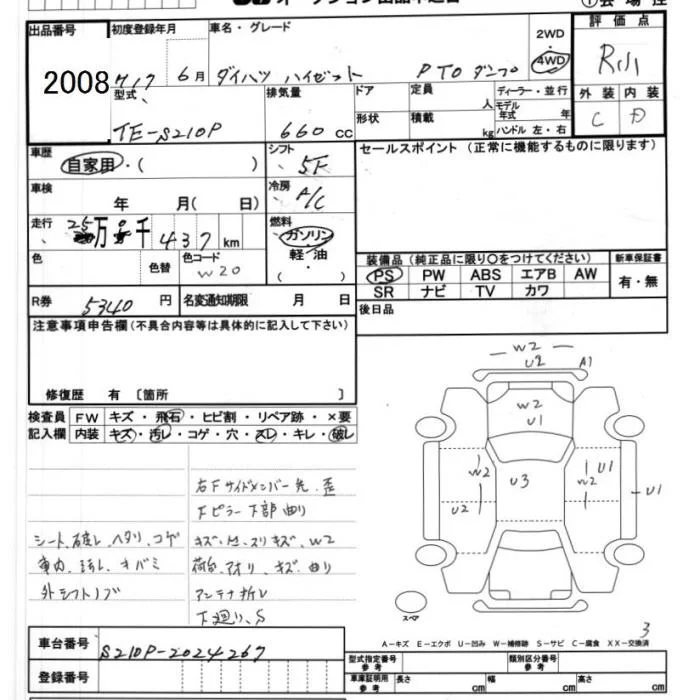 出品番号
2008
初度登録年月
H17 6月
車名・グレード
ダイハツ ハイゼット PTO ダンプ
2WD
4WD
評価点
R
外装 内装
C D
型式
TE-S210P
排気量
660 cc
ドア
形状
定員
人
積載
kg
ディーラー・並行
モデル年式 年
ハンドル 左・右
車歴
自家用・( )
シフト
5F
セールスポイント (正常に機能するものに限ります)
車検
年 月( 日)
冷房
A/C
走行
25万0千437km
燃料
ガソリン
軽・油
色
色替
色コード
W20
装備品 (純正品に限り○をつけてください)
新車保証書
PS PW ABS エアB AW
SR ナビ TV カワ
有・無
R券
5340円
名変通知期限 月 日
後日品
注意事項申告欄(不具合内容等は具体的に記入して下さい)
修復歴 有 〔箇所 〕
検査員記入欄
FW キズ・飛石・ヒビ割・リペア跡・×要
内装 キズ・汚レ・コゲ・穴・スレ・キレ・破レ
右F サイドメンバー先、歪
Fピラー下部曲り
シート、破レ、ヘタリ、コゲ
キズ・凹・スリキズ、W2
車内、汚レ、オバミ
荷台、アオリ、キズ、曲り
外シフトノブ
アンテナ折レ
下廻り、S
W2
U2 A1
W2
U1
W2
U2
U3
U1
W2
U1
スペア
3
A−キズ E−エクボ U−凹み W−補修跡 S−サビ C−腐食 XX−交換済
車台番号
S210P-2024267
登録番号
型式指定番号 参考
類別区分番号 参考
車庫証明用 参考
長さ cm
幅 cm
高さ cm